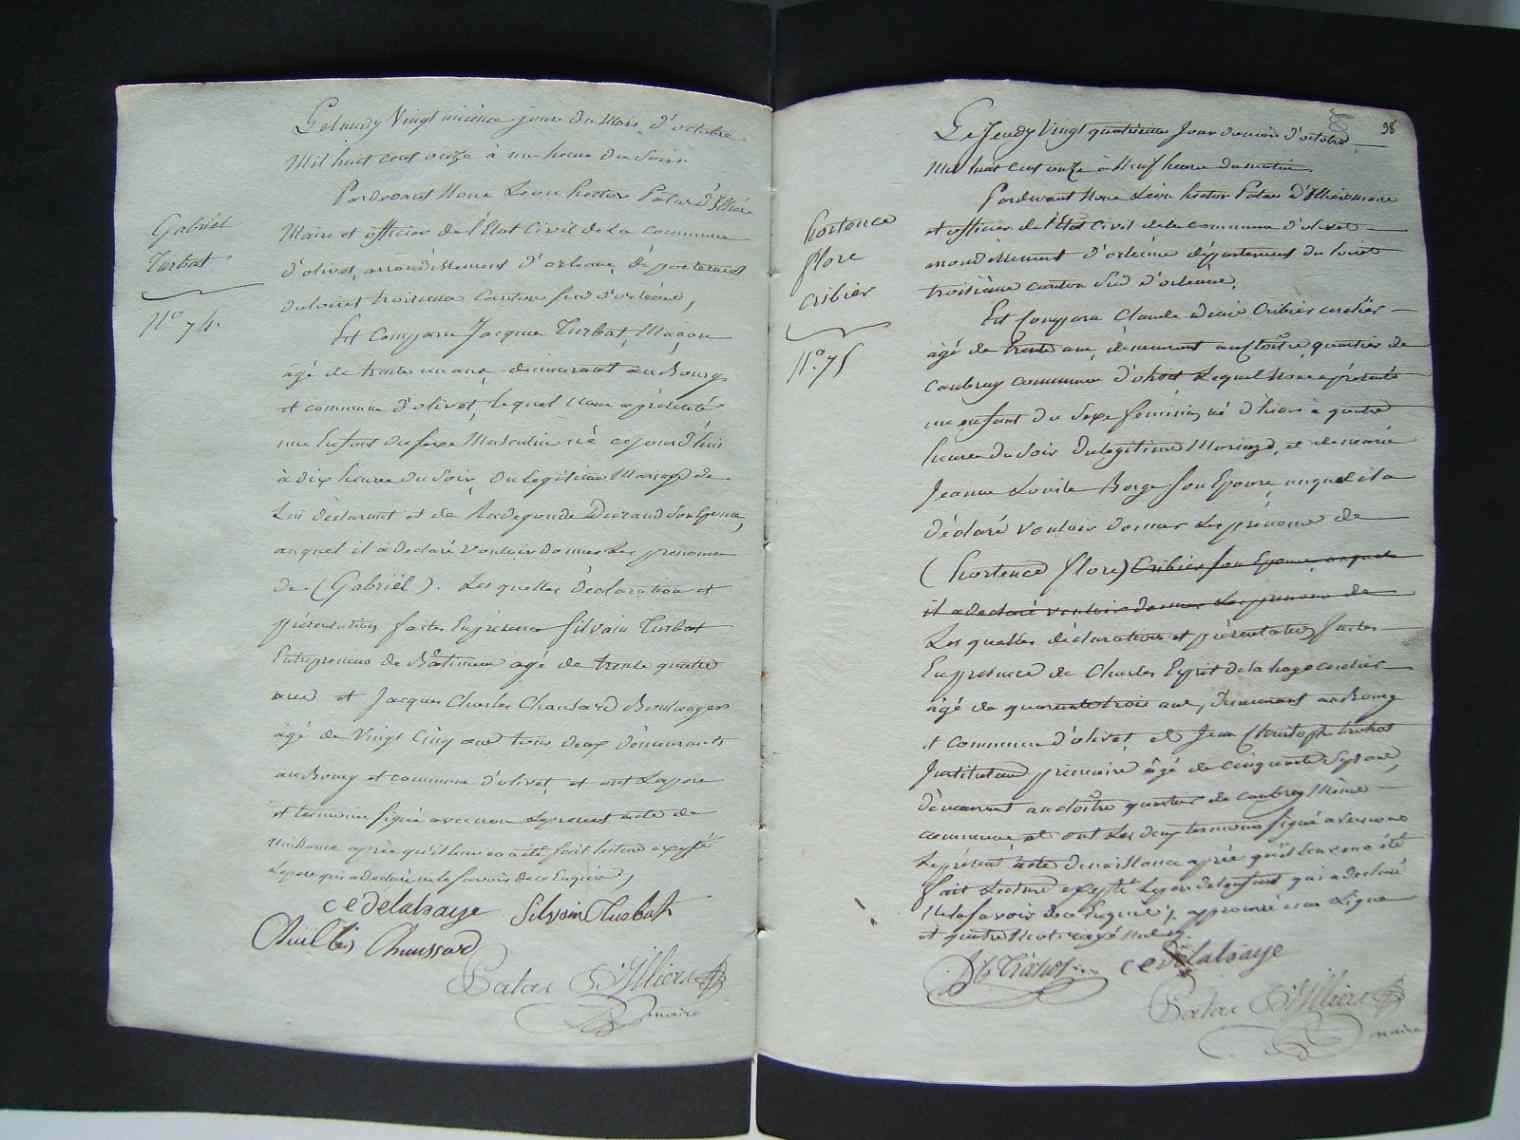 Gabriel
Turbat
N° 74.
Le Lundy Vingt unième jour du Mois d'octobre
Mil huit cent onze à une heure du Soir.
Pardevant Nous Léon hector Patas d'Illiers
Maire et officier de l'État Civil de La commune
d'olivet, arrondissement d'orléans, département
du loiret troisième Canton Sud d'orléans,
Est Comparu Jacque Turbat, Maçon
âgé de trente un ans, demeurant au Bourg
et commune d'olivet, lequel nous a présenté
un Enfant du Sexe Masculin né
à dix heures du Soir, du légitime Mariage de
Lui déclarant et de Radegonde Durand Son Epouse,
auquel il a déclaré vouloir donner Les prénoms
de (Gabriël). Les quelles déclaration et
présentation faites En présence Silvain Turbat
Entrepreneur de Bâtimens âgé de trente quatre
ans et Jacques Charles Chaussard Boulanger
âgé de Vingt Cinq ans tous deux demeurants
au Bourg et commune d'olivet, et ont Le père
et témoins signé avec nous Le présent acte de
naissance après qu'il leur en a été fait lecture excepté
Le père qui a Déclaré ne le Savoir de ce Enquis,
C e Delahaye Silvain Turbat
Chaussard
Patas D'Illiers
maire
98
hortence
flore
cribier
N°. 75
Le Jeudy Vingt quatrième Jour du mois d'octobre
Mil huit cent onze à Neuf heures du matin
Pardevant Nous Léon hector Patas d'Illiers maire
et officier de l'État Civil de la commune d'olivet
arrondissement d'orléans département du loiret
troisième canton Sud d'orléans.
Est Comparu Claude Cribier cordier
âgé de trente ans, demeurant au Cloître quartier de
Caubray commune d'olivet Lequel Nous a présenté
un enfant du Sexe féminin, né d'hier à quatre
heures du Soir du légitime Mariage, et de
Jeanne Louise Borge Son Epouse auquel il a
déclaré vouloir donner Les prénoms de
(hortence flore) Cribier Son Epouse auquel
il a déclaré vouloir donner Les prénoms de
Les quelles déclaration et présentation faites
En présence de Charles Esprit delahaye cordier
âgé de quarante trois ans, Demeurant au Bourg
et commune d'olivet, et Jean Christoph trichot
Instituteur primaire âgé de cinquante Sept ans,
demeurant au cloître quartier de caubray Même
commune et ont Les deux témoins Signé avec nous
Le présent acte de naissance après qu'il leur en a été
fait Lecture excepté Le père de l'enfant qui a déclaré
Ne le Savoir de ce Enquis, approuvé une Ligne
et quatre Mots rayé nuls.
Trichot C e Delahaye
Patas D'Illiers
maire